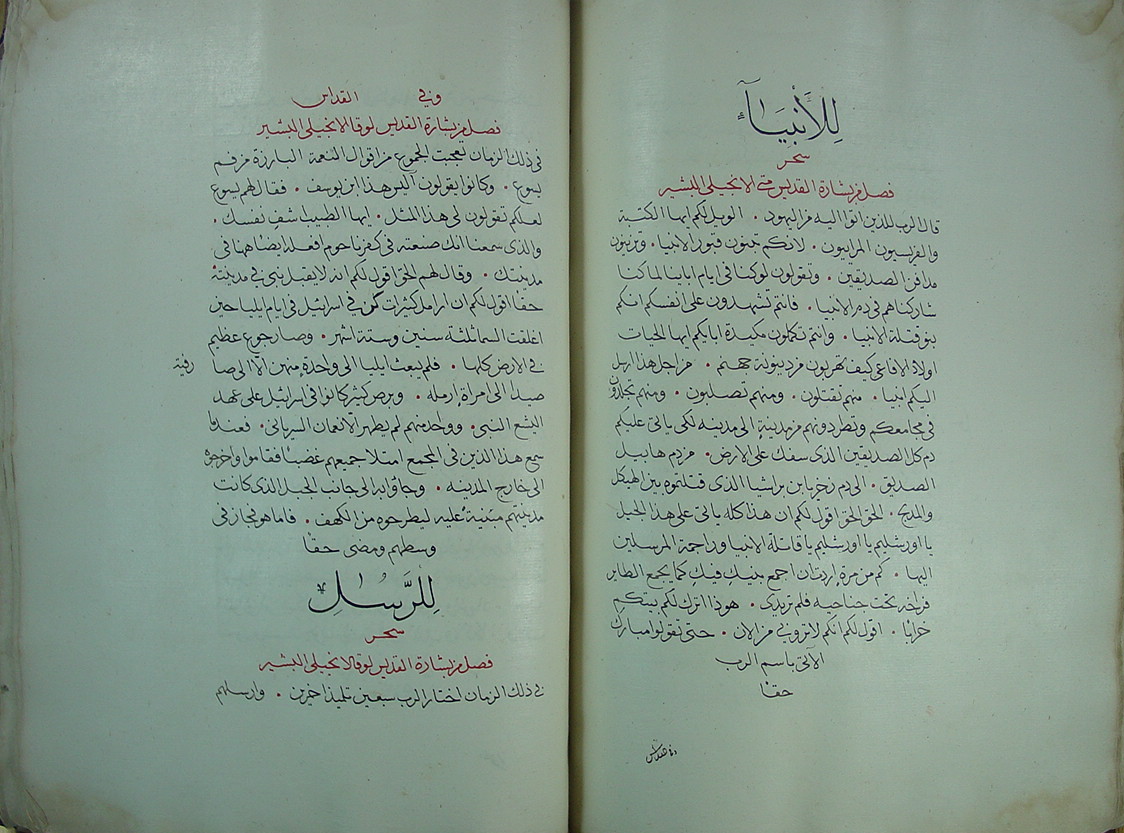 للأنبياء
سحر
فصل من بشارة القديس متى الانجيلي البشير
قال الرب للذين اتوا اليه من اليهود • الويل لكم ايها الكتبة
والفريسيون المرايون • لانكم تبنون قبور الانبيا • وتزينون
مدافن الصديقين • وتقولون لو كنا في ايام ابائنا لما كنا
شاركناهم في دم الانبيا • فانتم تشهدون على انفسكم انكم
بنو قتلة الانبيا • وانتم تكملون مكيدة ابايكم ايها الحيات
اولاد الافاعي كيف تهربون من دينونة جهنم • من اجل هذا ارسل
اليكم انبيا • منهم تقتلون • ومنهم تصلبون • ومنهم تجلدون
في مجامعكم وتطردونهم من مدينةٍ الى مدينه لكي ياتى عليكم
دم كل الصديقين الذى سفك على الارض • من دم هابيل
الصديق • الى دم زخريا بن براشيا الذى قتلتموه بين الهيكل
والمذبح • الحق الحق اقول لكم ان هذا كله ياتى على هذا الجيل
يا اورشليم يا اورشليم يا قاتلة الانبيا وراجمة المرسلين
اليها • كم من مرة اردت ان اجمع بنيكِ فيكِ كما يجمع الطاير
فراخه تحت جناحيه فلم تريدى • هوذا اترك لكم بيتكم
خرابًا • اقول لكم انكم لا تروني من الان • حتى تقولوا مبارك
الآتي باسم الرب
حقًا
وفي القداس
فصل من بشارة القديس لوقا الانجيلي البشير
في ذلك الزمان تعجبت الجموع من اقوال النعمة البارزة من فم
يسوع • وكانوا يقولون اليس هذا ابن يوسف • فقال لهم يسوع
لعلكم تقولون لي هذا المثل • ايها الطبيب اشفِ نفسك •
والذى سمعنا انك صنعته في كفرناحوم افعله ايضًا ههنا في
مدينتك • وقال لهم الحق اقول لكم انه لا يقبل نبي في مدينته
حقا اقول لكم ان ارامل كثيرات كن في اسرائيل في ايام ايليا حين
اغلقت السما ثلثة سنين وستة اشهر • وصار جوع عظيم
في الارض كلها • فلم يبعث ايليا الى واحدة منهن الّا الى صا
رفية
صيدا الى امراة ارمله • وبرص كثير كانوا في اسرائيل على عهد
اليشع النبي • وواحد منهم لم يطهر الّا نعمان السرياني • فعندما
سمع هذا الذين في المجمع امتلا جميعهم غضبًا فقاموا واخرجوه
الى خارج المدينه • وجاوا به الى جانب الجبل الذى كانت
مدينتهم مبنية عليه ليطرحوه من الكهف • فاما هو فجاز في
وسطهم ومضى حقًا
للرَّسل
سحر
فصل من بشارة القديس لوقا الانجيلي البشير
في ذلك الزمان اختار الرب سبعين تلميذا اخرين • وارسلهم